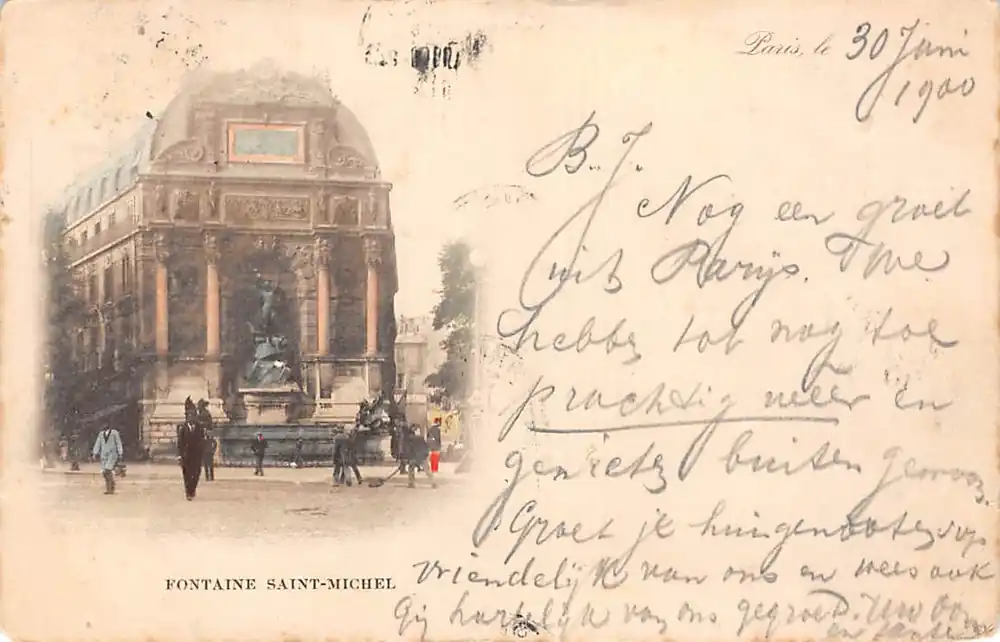 Paris, le 30 Juni
1900
B. J.
Nog een groet
uit Parijs. We
hebbe tot nog toe
prachtig weer en
geniete buiten gewoon.
Groet je huisgenoote op
vriendelijk van ons en wees ook
Gij hartelijk van ons gegroet. Uw
en
FONTAINE SAINT-MICHEL